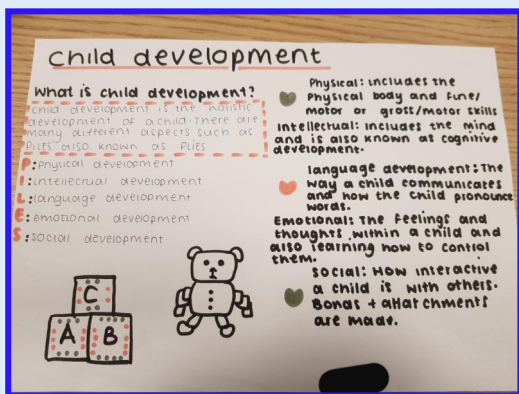 child development
What is child development?
child development is the holistic
development of a child. There are
many different aspects such as
PILES also known as PLIES
P: physical development
I: intellectual development
L: language development
E: emotional development
S: social development
C
A B
Physical: includes the
Physical body and fine/
motor or gross/motor skills
Intellectual: includes the mind
and is also known as cognitive
development.
language development: The
way a child communicates
and how the child pronounce
words.
Emotional: The feelings and
thoughts within a child and
also learning how to control
them.
social: How interactive
a child is with others.
Bonds + attachments
are made.